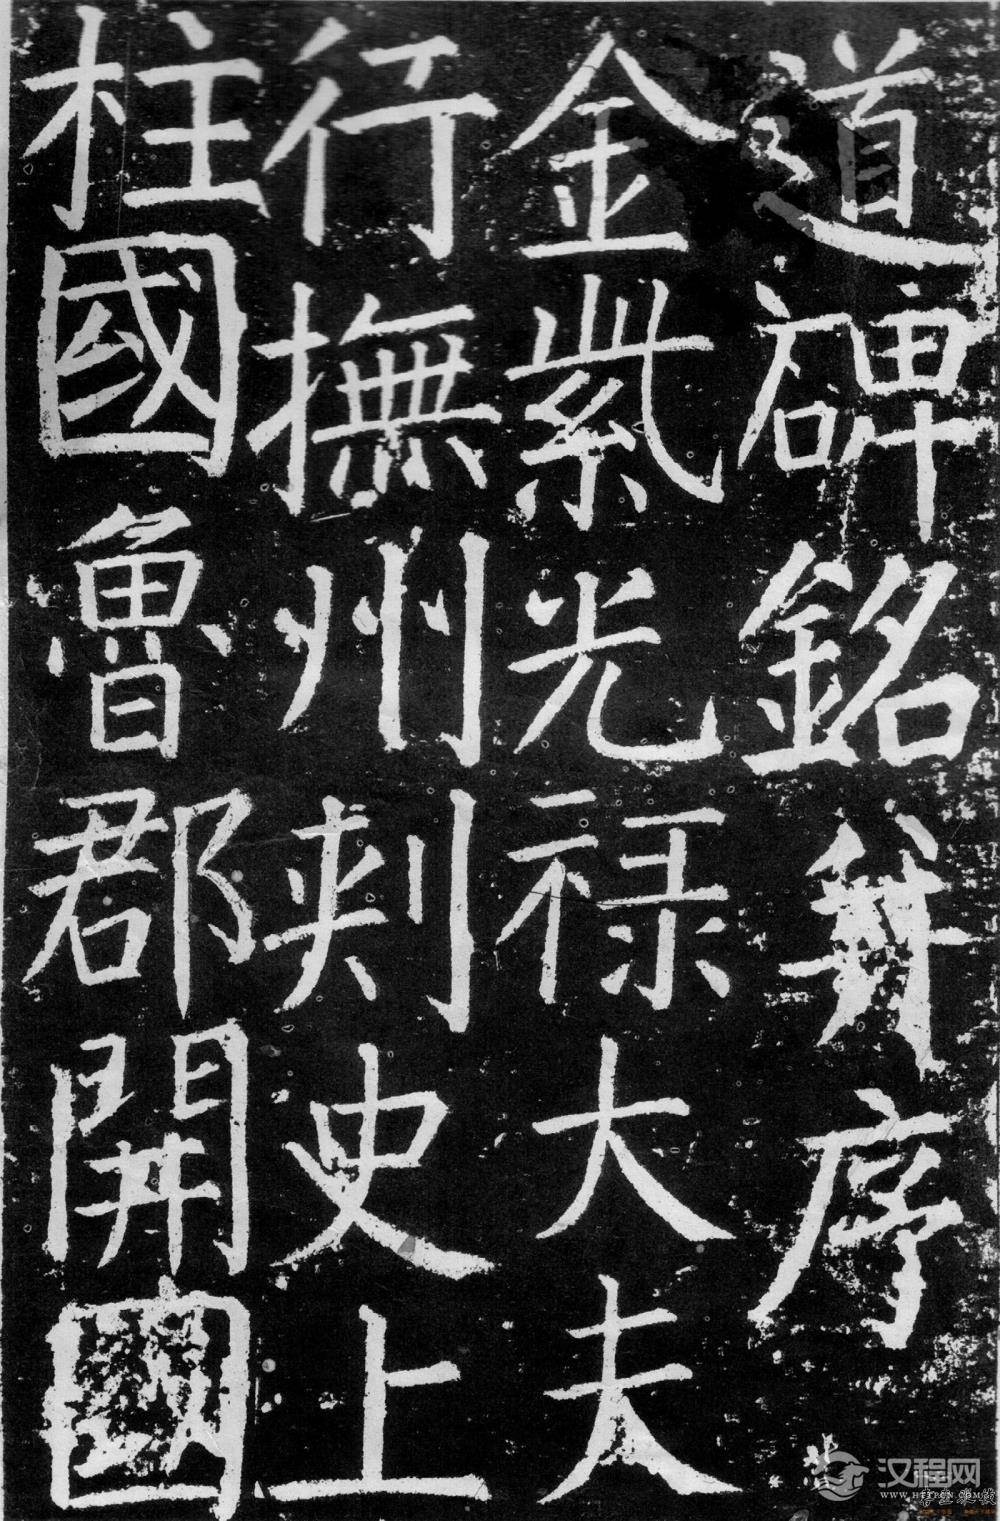 道碑銘并序
金紫光禄大夫
行撫州刺史上
柱國魯郡開國
汉程网
WWW.HTTPCN.COM